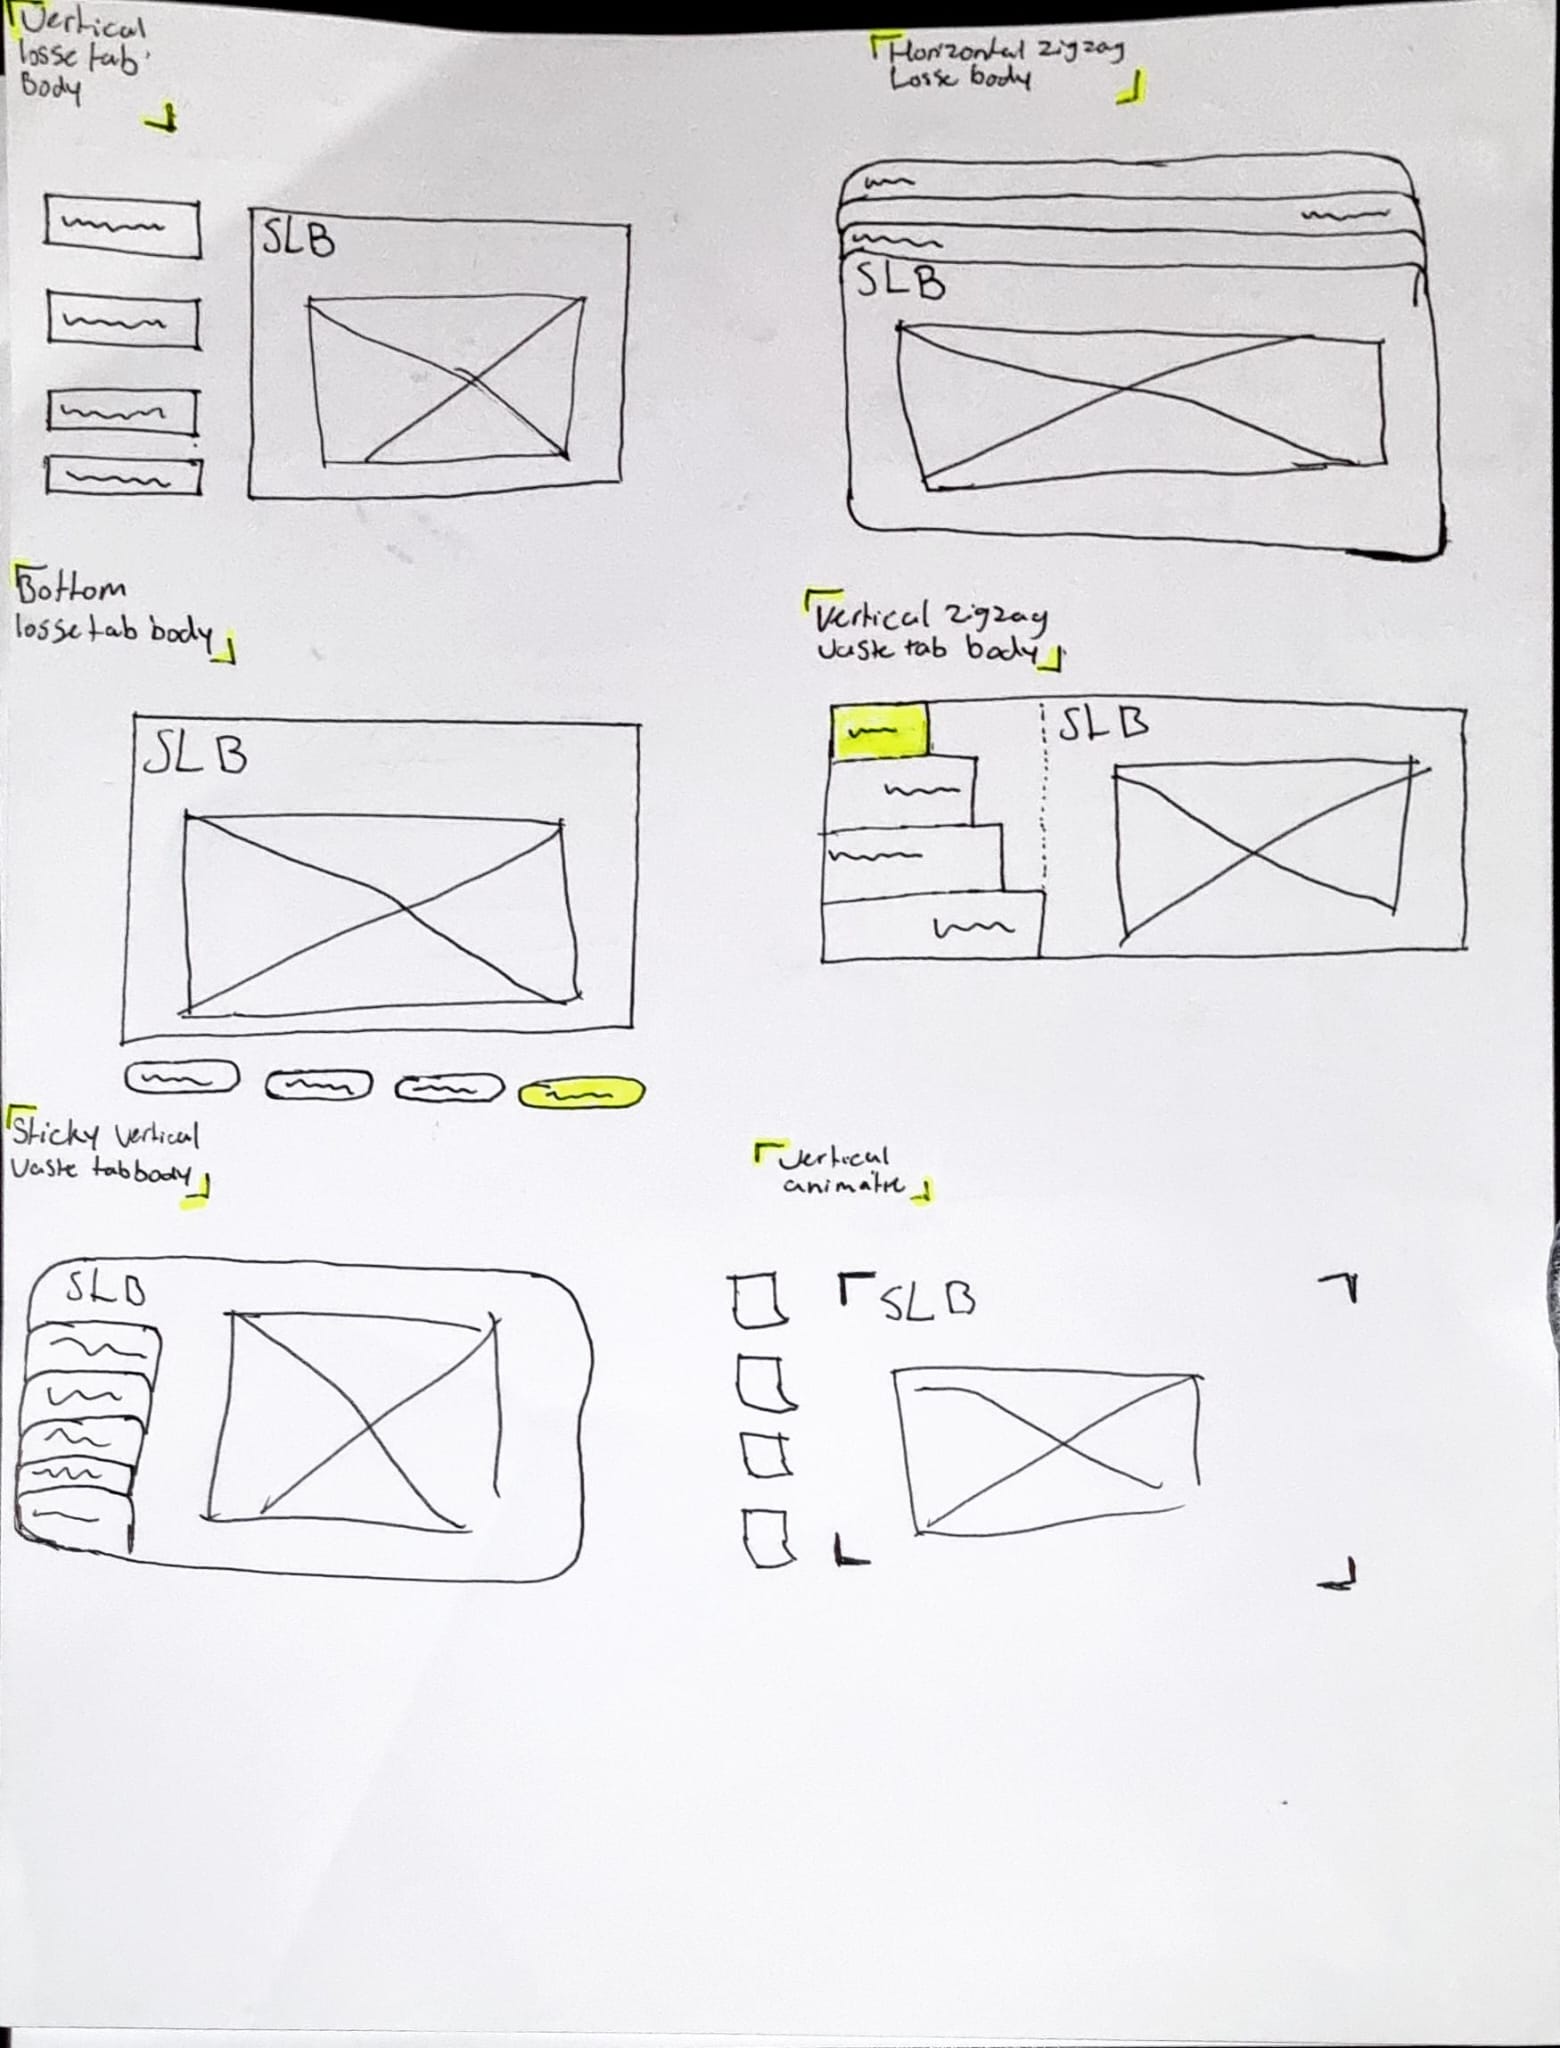 Vertical
losse tab
Body
SLB
Horizontal zigzag
Losse body
SLB
Bottom
losse tab body
SLB
Vertical zigzag
vaste tab body
SLB
Sticky vertical
vaste tab body
SLB
Vertical
animatie
SLB